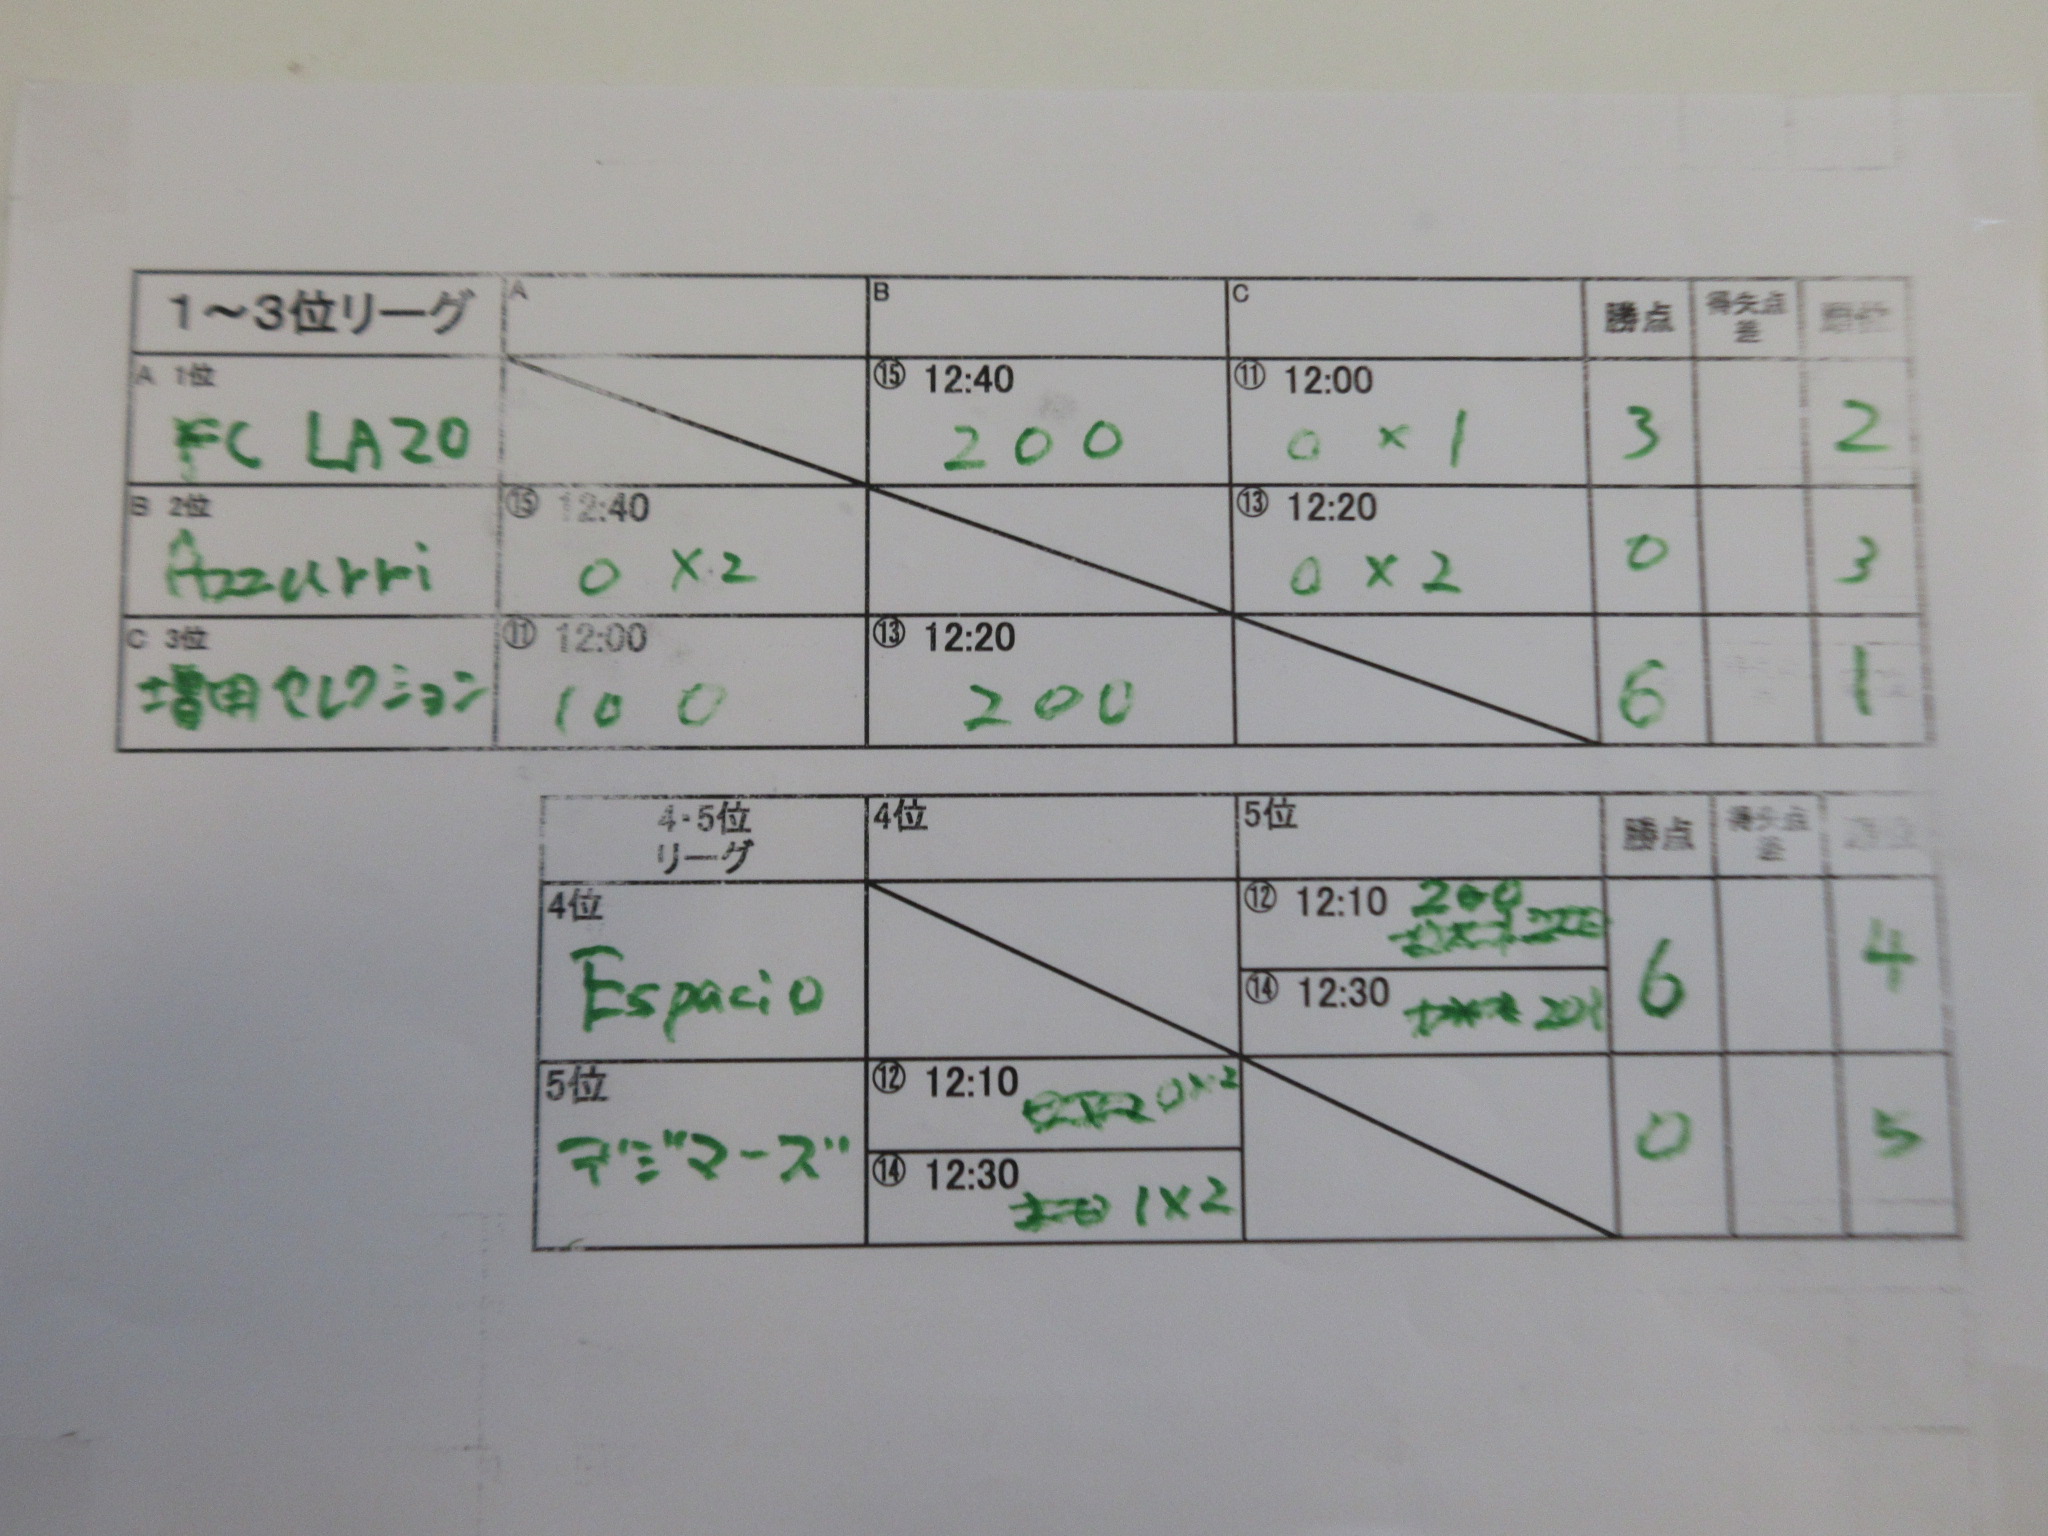 1～3位リーグ A B C 勝点 得失点差 順位
A 1位 ⑮ 12:40 ⑪ 12:00
FC LAZO 2○0 0×1 3 2
B 2位 ⑮ 12:40 ⑬ 12:20
Azzurri 0×2 0×2 0 3
C 3位 ⑪ 12:00 ⑬ 12:20
増田セレクション 1○0 2○0 6 1
4・5位リーグ 4位 5位 勝点 得失点差
4位 ⑫ 12:10 2○0
Espacio ⑭ 12:30 2○1 6 4
5位 ⑫ 12:10 0×2
デジマーズ ⑭ 12:30 1×2 0 5